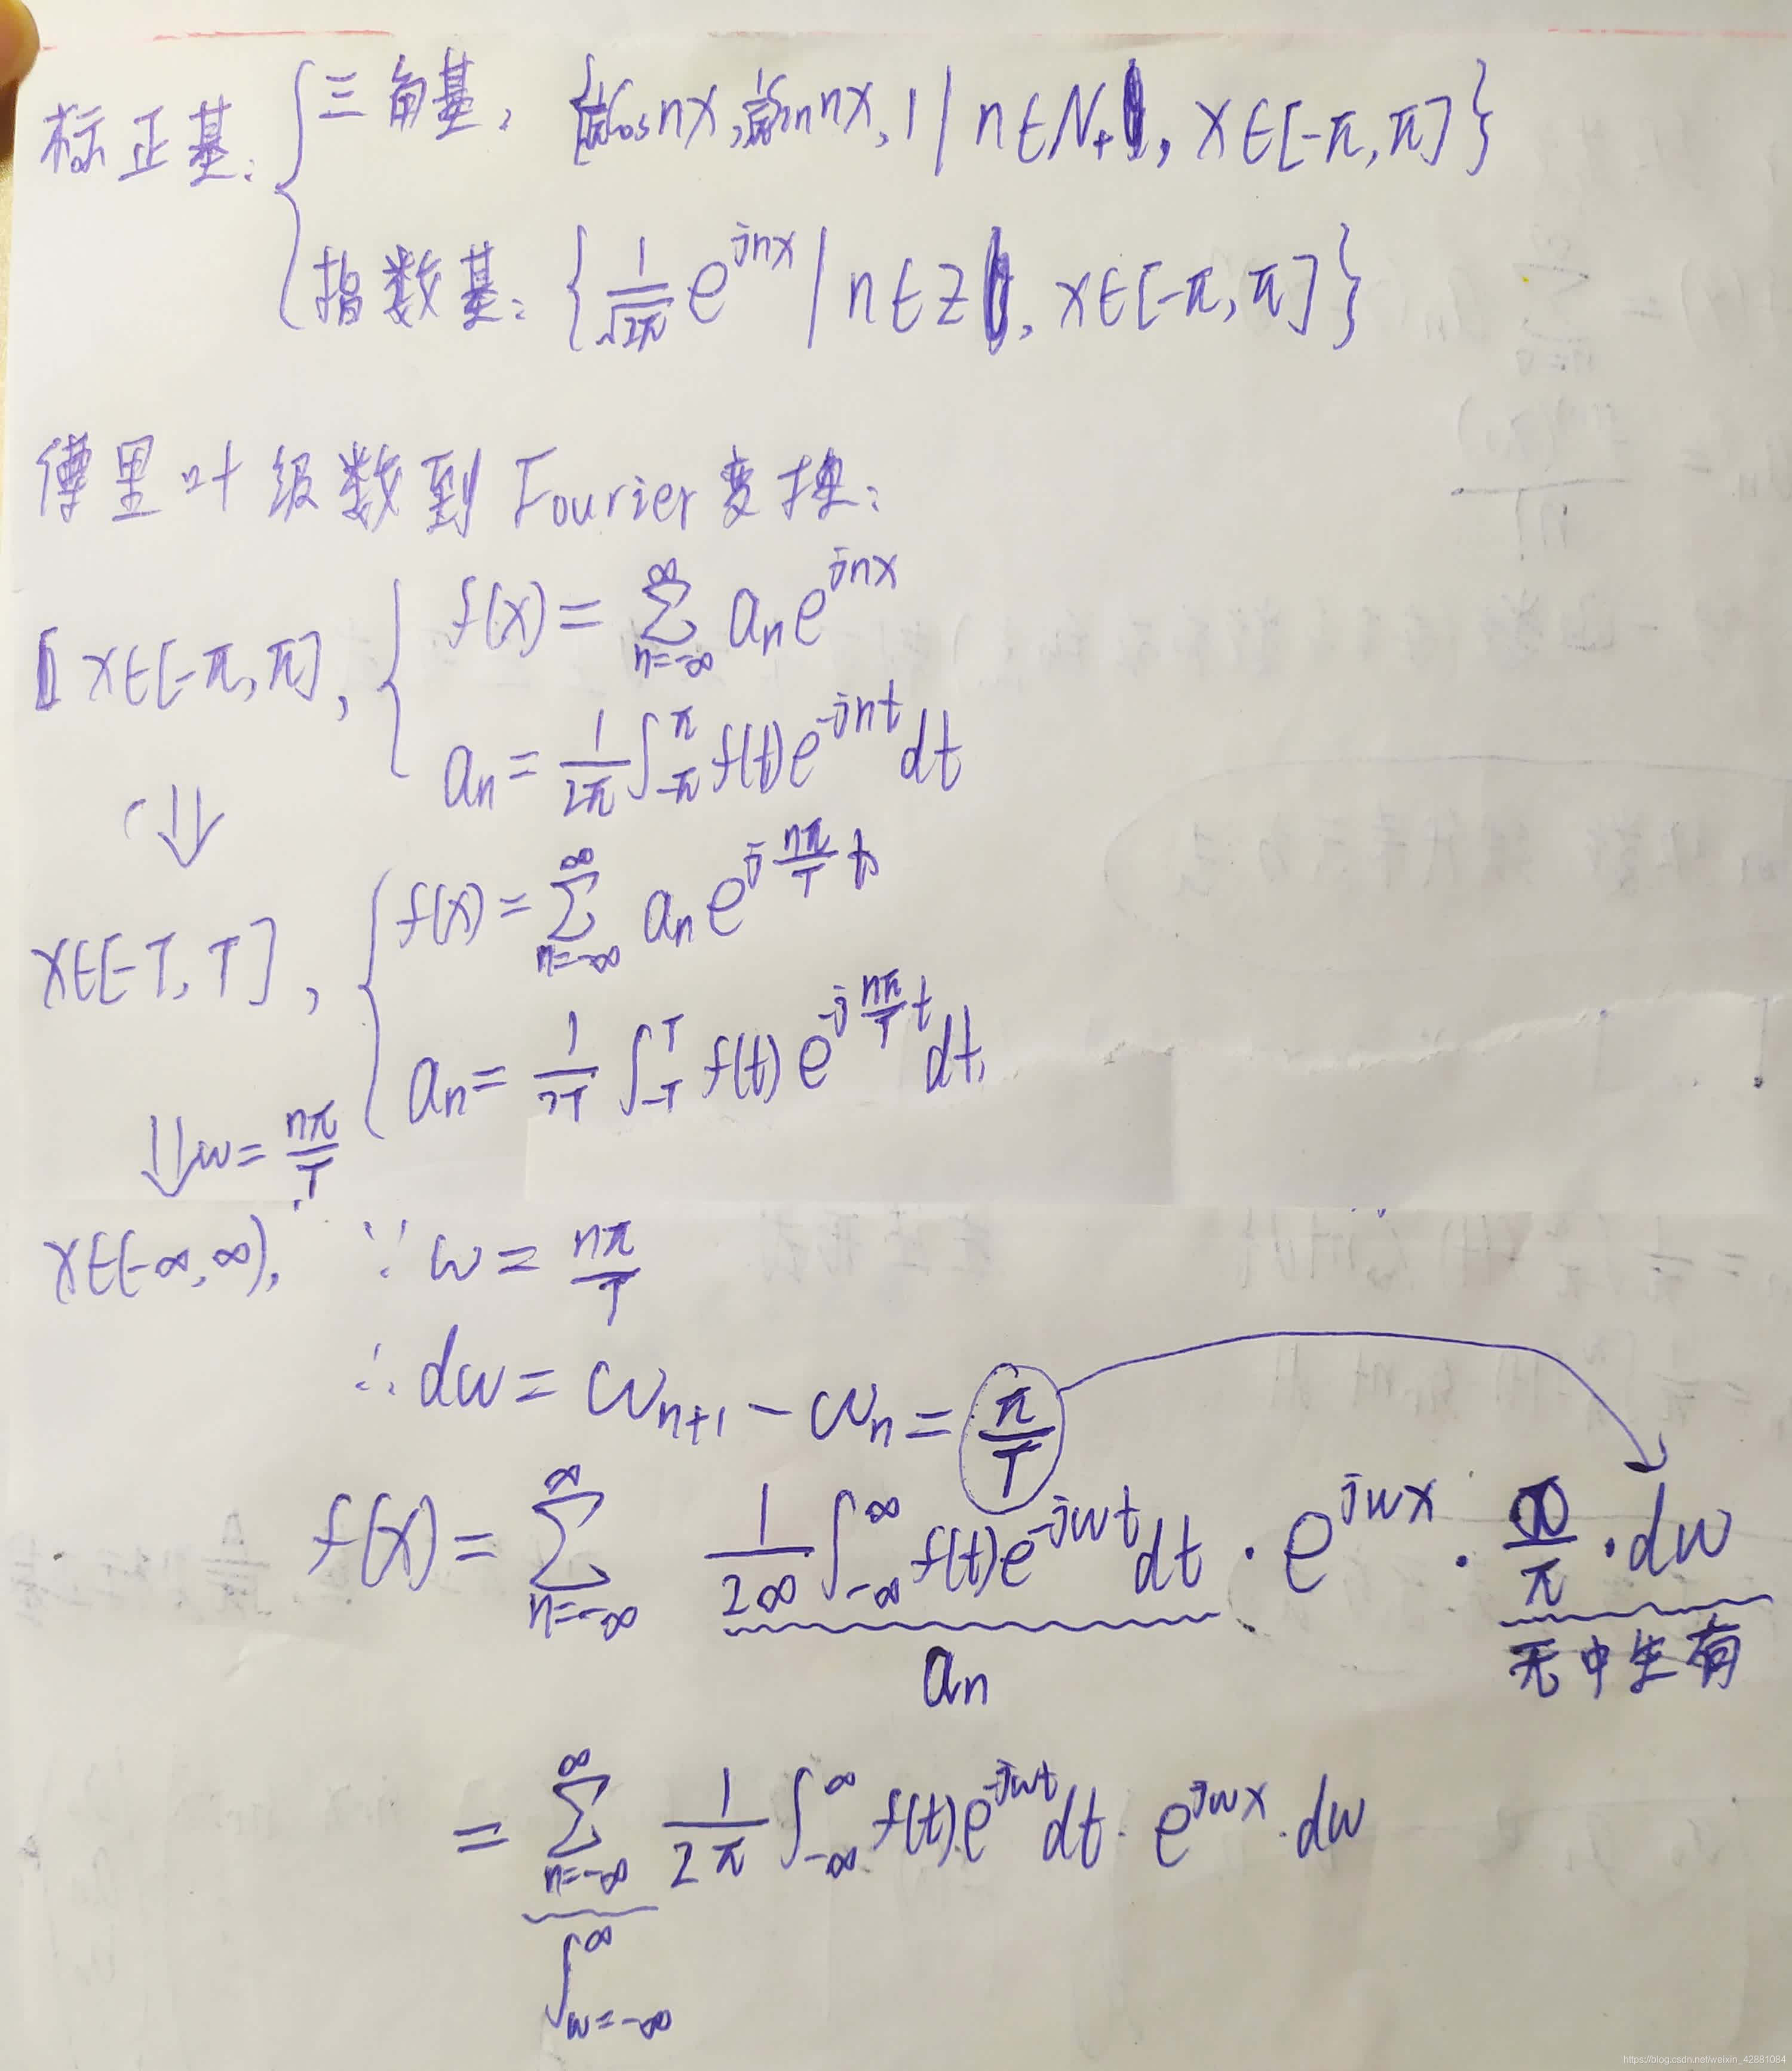 标正基: { 三角基, {1/√π cos nx, 1/√π sin nx, 1 | n∈N₊, x∈[-π, π]}
指数基: {1/√2π e^{jnx} | n∈Z, x∈[-π, π]}
傅里叶级数到Fourier变换:
x∈[-π, π], { f(x) = ∑_{n=-∞}^{∞} aₙe^{jnx}
aₙ = 1/2π ∫_{-π}^{π} f(t)e^{-jnt}dt
⇓
x∈[-T, T], { f(x) = ∑_{n=-∞}^{∞} aₙe^{j nπ/T}
aₙ = 1/2T ∫_{-T}^{T} f(t)e^{-j nπ/T t}dt.
⇓ w = nπ/T
x∈(-∞, ∞), ∵ w = nπ/T
∴ dw = wₙ₊₁ - wₙ = π/T
f(x) = ∑_{n=-∞}^{∞} 1/2∞ ∫_{-∞}^{∞} f(t)e^{-jwt}dt · e^{jwx} · ∞/π · dw
aₙ 无中生有
= ∑_{n=-∞}^{∞} 1/2π ∫_{-∞}^{∞} f(t)e^{-jwt}dt · e^{jwx} · dw
∫_{w=-∞}^{∞}
https://blog.csdn.net/weixin_42881084